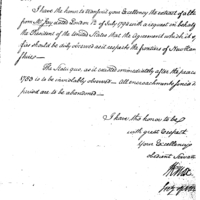 I have the honor to transmit your Excellency the extract of a letter
from Mr Jay dated London 12 of July 1794 with a request on behalf
the President of the United States that the Agreement which it
be duly observed as it respects the frontiers of New Ham
shire
The Status quo, as it existed immediately after the peace
1783 is to be inviolably observed — All encroachments
period are to be abandoned —
I have the honor to be
with great respect
your Excellency's
obedient Servant